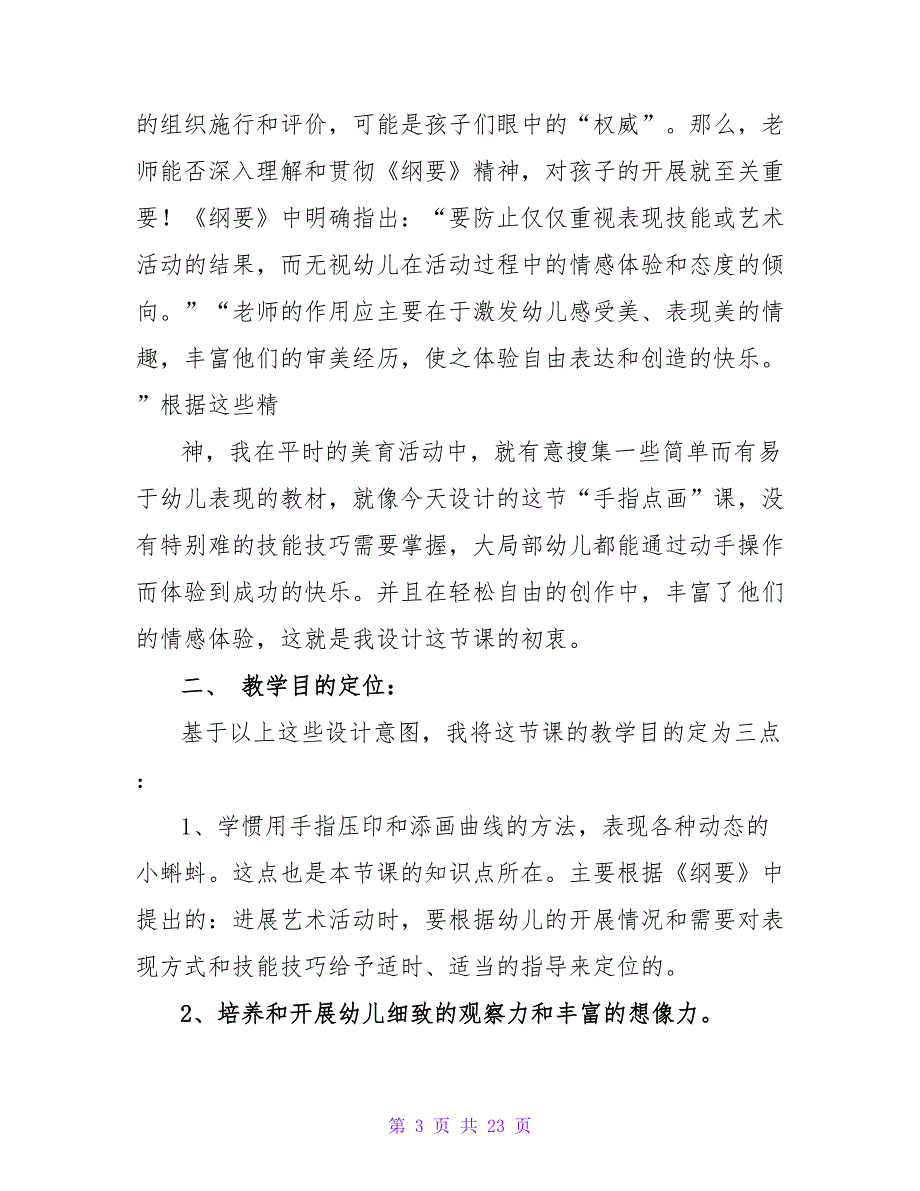 的组织施行和评价，可能是孩子们眼中的“权威”。那么，老
师能否深入理解和贯彻《纲要》精神，对孩子的开展就至关重
要！《纲要》中明确指出：“要防止仅仅重视表现技能或艺术
活动的结果，而无视幼儿在活动过程中的情感体验和态度的倾
向。”“老师的作用应主要在于激发幼儿感受美、表现美的情
趣，丰富他们的审美经历，使之体验自由表达和创造的快乐。
”根据这些精
神，我在平时的美育活动中，就有意搜集一些简单而有易
于幼儿表现的教材，就像今天设计的这节“手指点画”课，没
有特别难的技能技巧需要掌握，大局部幼儿都能通过动手操作
而体验到成功的快乐。并且在轻松自由的创作中，丰富了他们
的情感体验，这就是我设计这节课的初衷。
二、 教学目的定位：
基于以上这些设计意图，我将这节课的教学目的定为三点
：
1、学惯用手指压印和添画曲线的方法，表现各种动态的
小蝌蚪。这点也是本节课的知识点所在。主要根据《纲要》中
提出的：进展艺术活动时，要根据幼儿的开展情况和需要对表
现方式和技能技巧给予适时、适当的指导来定位的。
2、培养和开展幼儿细致的观察力和丰富的想像力。
第 3 页 共 23 页